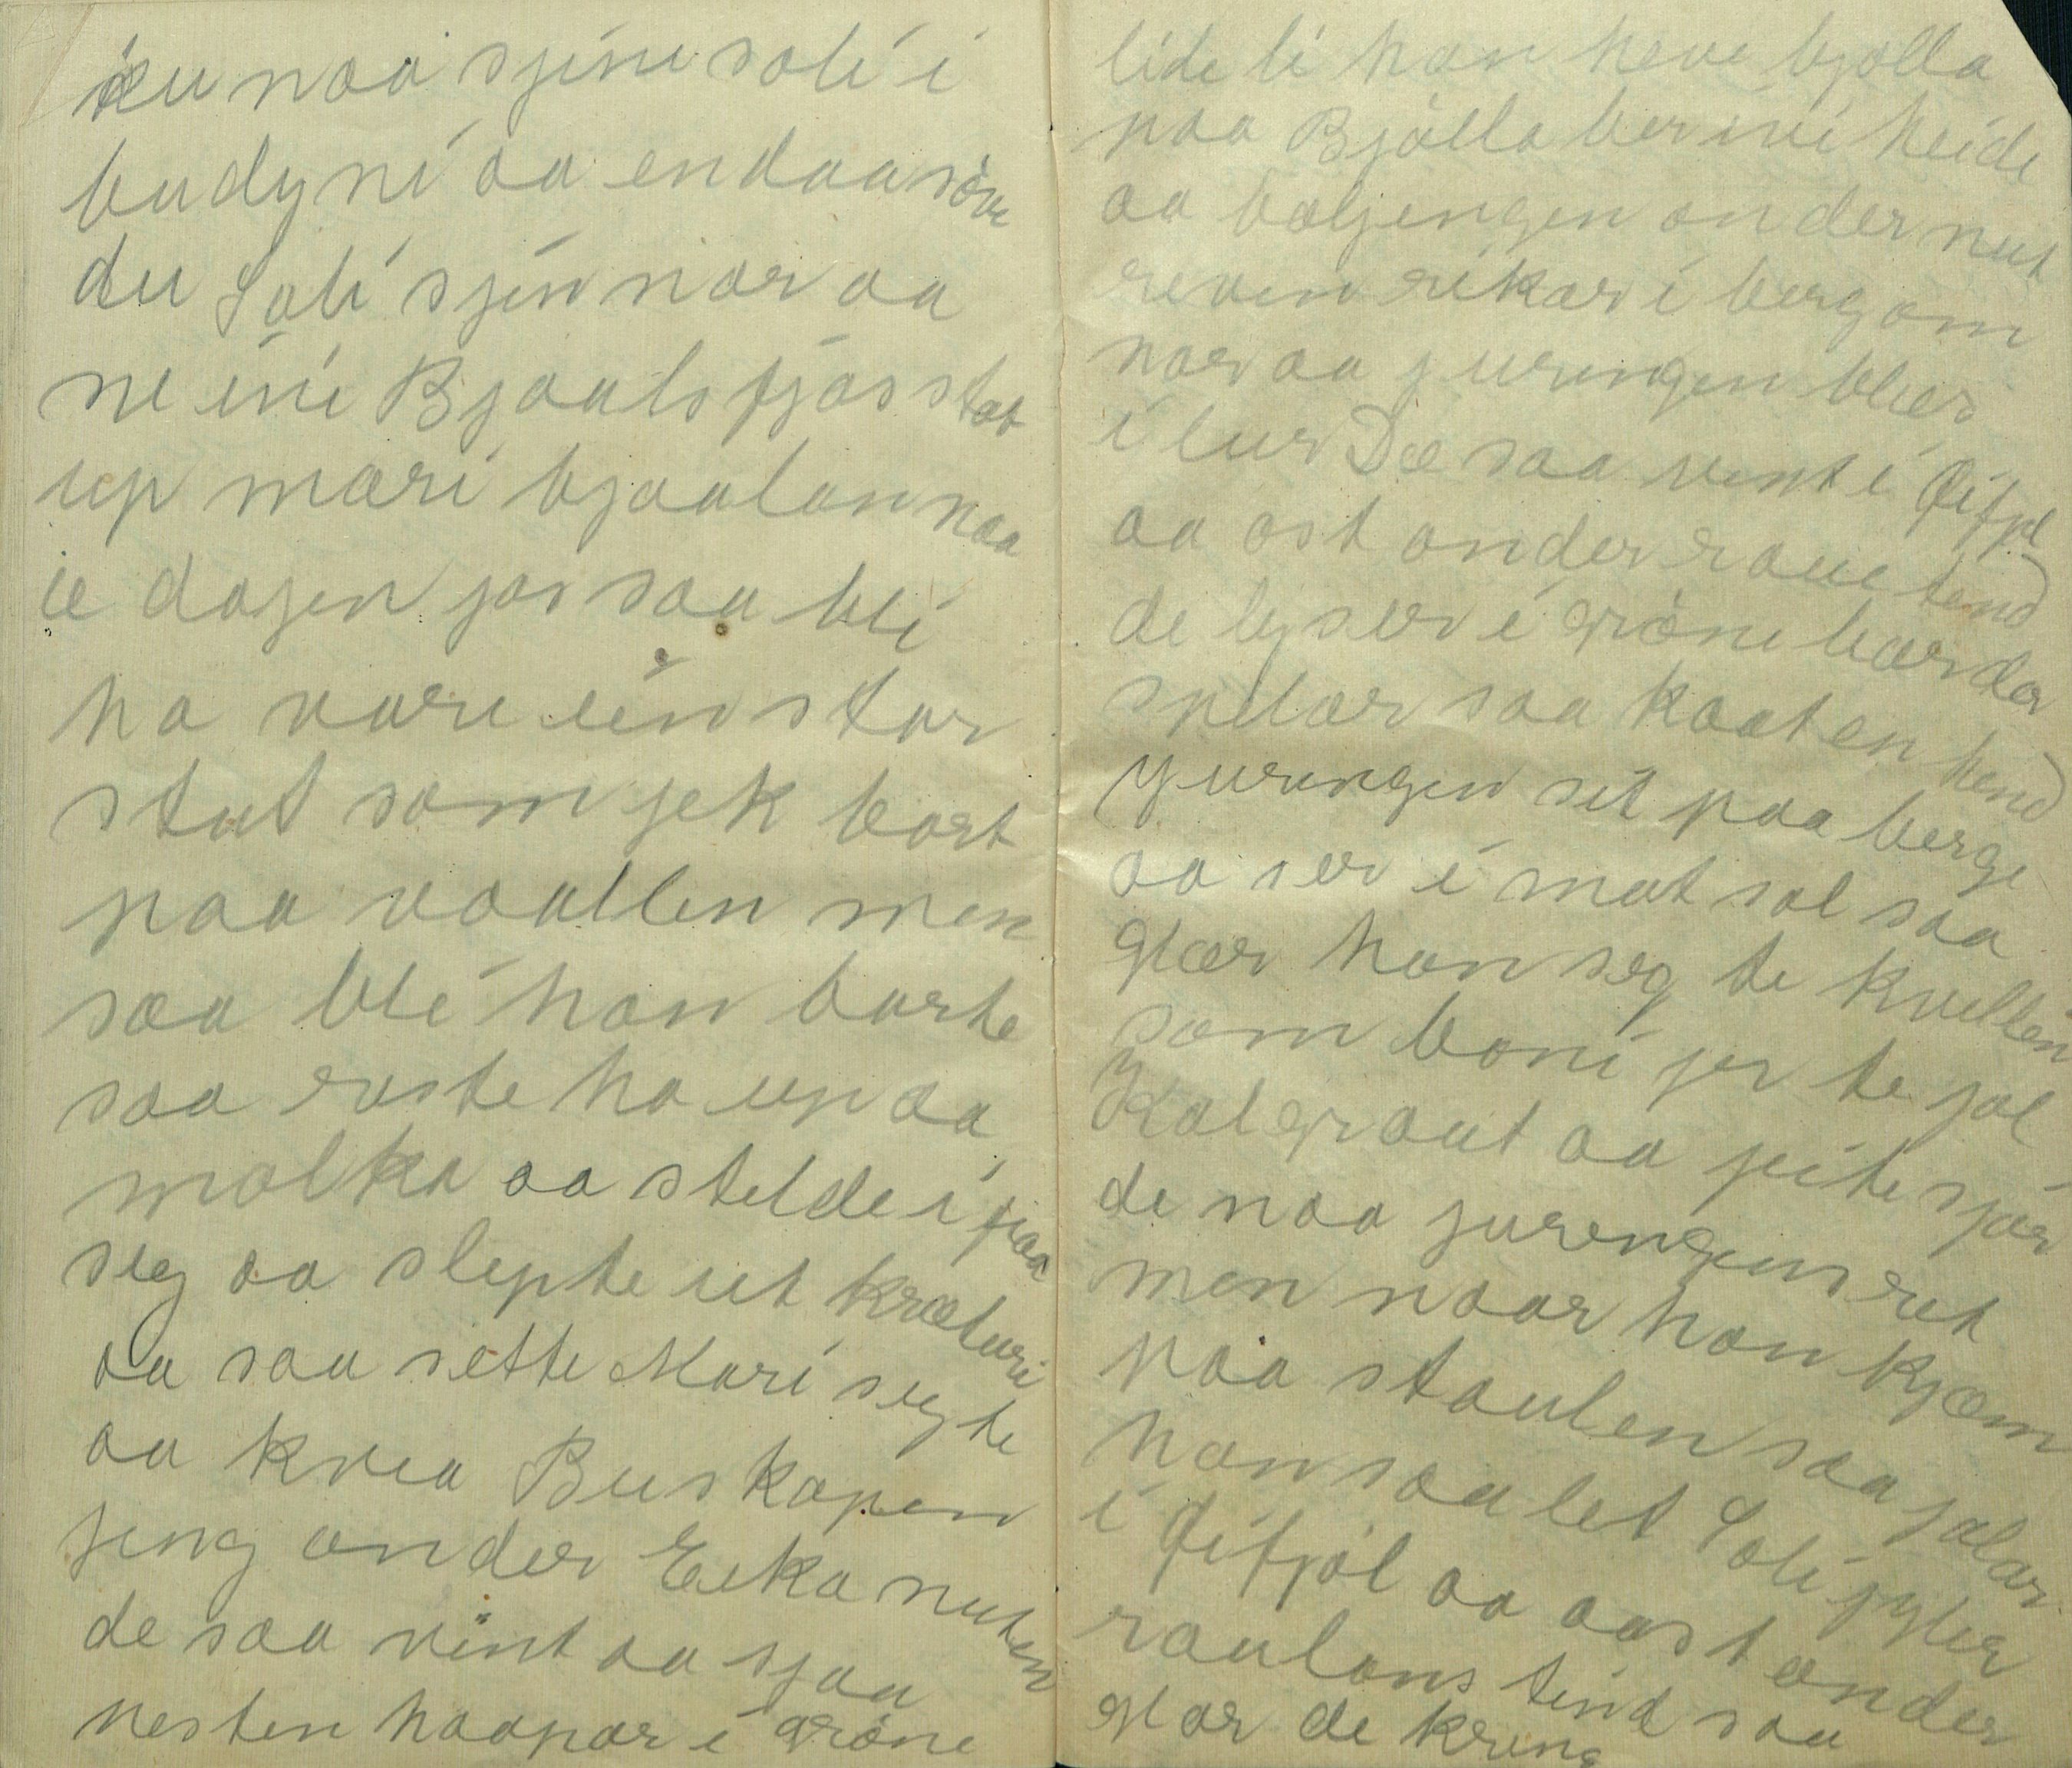 ku naa sjine soli i
budyni aa endaa søve
du Soli sjin nor aa
ne ivi Bjaals fjos stat
up mari bjaalan naa
ie dagen jos saa blí
ho vare ein stor
stut som jek bort
paa vaallen men
saa blé han borte
saa roste ho up aa
molka aa stelde i fraa
seg aa slepte ut kræturi
aa saa sette Mari seg te
aa kvea Buskapen
jeng onder Eika nuten
de saa vint aa sjaa
nesten haapar i grøne
lide li han heve bjølla
paa Bjølla ber ivi heide
aa bøljengen onder nut
reven rikar i bergom
nor aa jurengen blæs
i lur Dæ saa vent i Qifjøl
aa ost onder raue tend
de lyser i grøne bærder
spelar saa kaat en hend
jurengen sit paa berge
aa ser i mot sol saa
glær han seg te kvellen
som boni jer te jol
Kolgraut aa feite sjør
de naa jurengens ret
men naar han kjæm
paa staulen saa jalar
han saa let Soli sygler
i Qifjøl aa aast onder
raulans tind saa
glor de kring